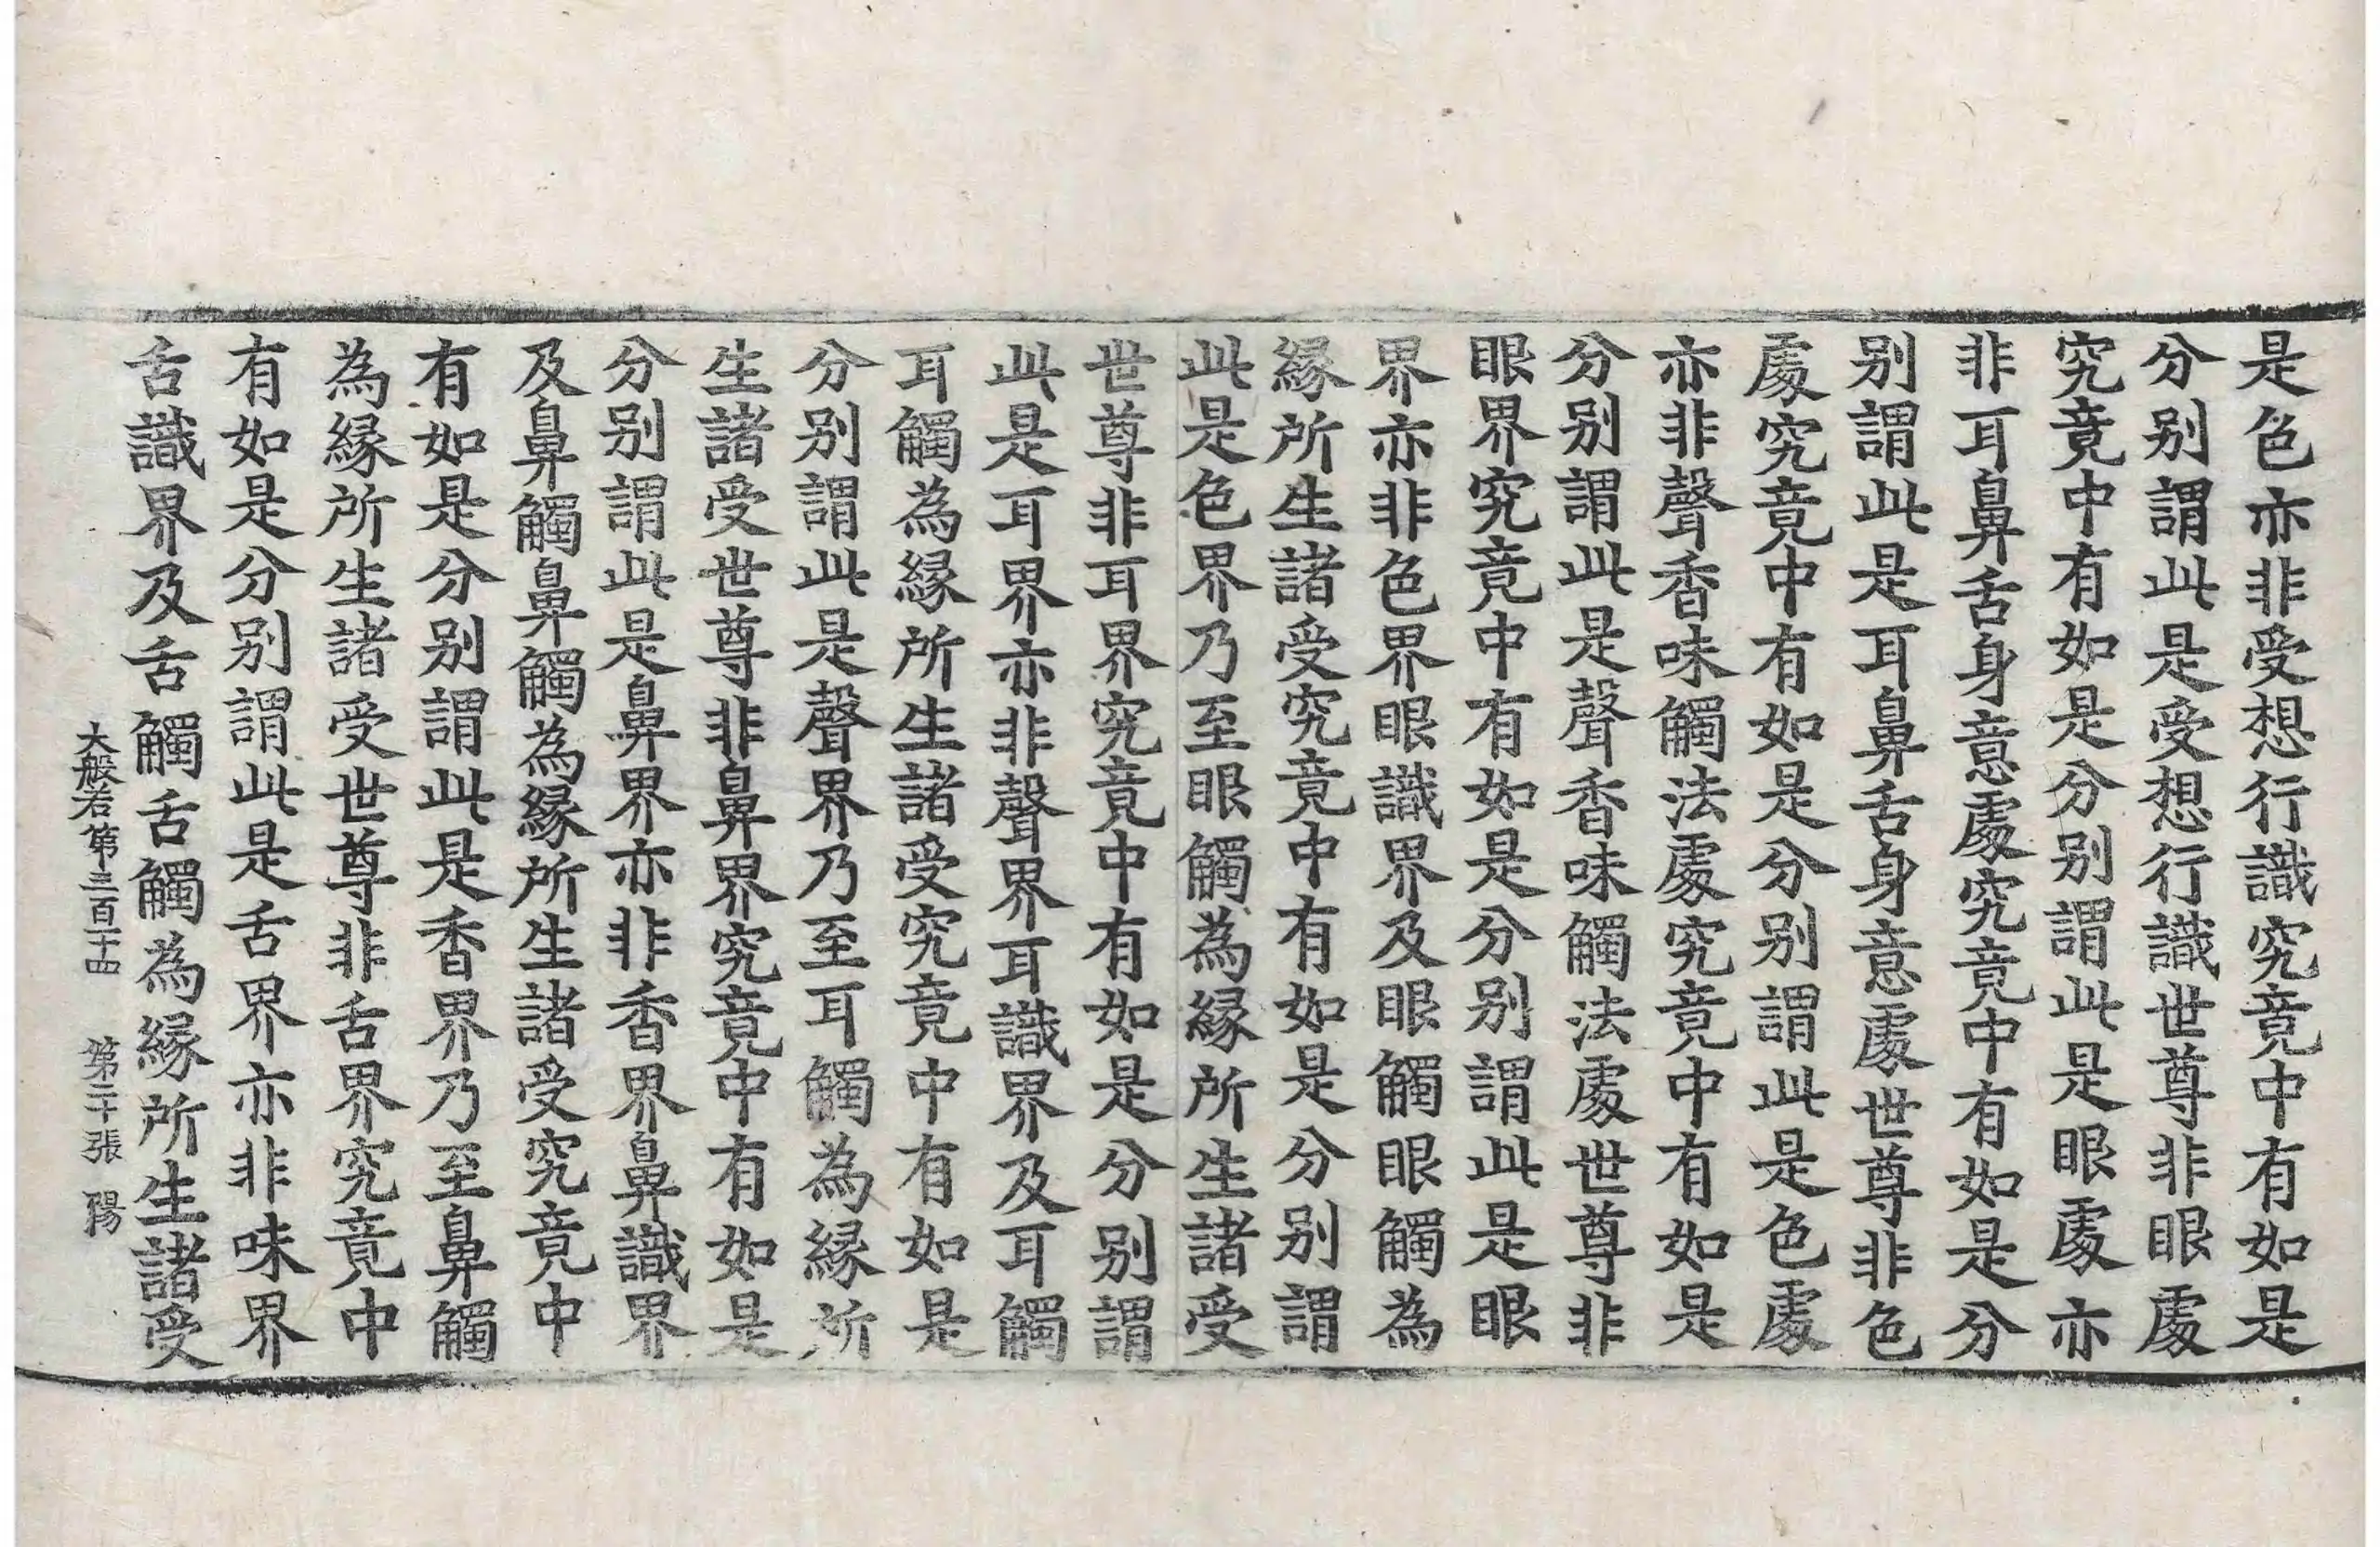 是色亦非受想行識究竟中有如是
分别謂此是受想行識世尊非眼處
究竟中有如是分别謂此是眼處亦
非耳鼻舌身意處究竟中有如是分
别謂此是耳鼻舌身意處世尊非色
處究竟中有如是分别謂此是色處
亦非聲香味觸法處究竟中有如是
分别謂此是聲香味觸法處世尊非
眼界究竟中有如是分别謂此是眼
界亦非色界眼識界及眼觸眼觸為
縁所生諸受究竟中有如是分别謂
此是色界乃至眼觸為縁所生諸受
世尊非耳界究竟中有如是分别謂
此是耳界亦非聲界耳識界及耳觸
耳觸為縁所生諸受究竟中有如是
分别謂此是聲界乃至耳觸為縁所
生諸受世尊非鼻界究竟中有如是
分别謂此是鼻界亦非香界鼻識界
及鼻觸鼻觸為縁所生諸受究竟中
有如是分别謂此是香界乃至鼻觸
為縁所生諸受世尊非舌界究竟中
有如是分别謂此是舌界亦非味界
舌識界及舌觸舌觸為縁所生諸受
大般若第三百十四 第二十張 陽